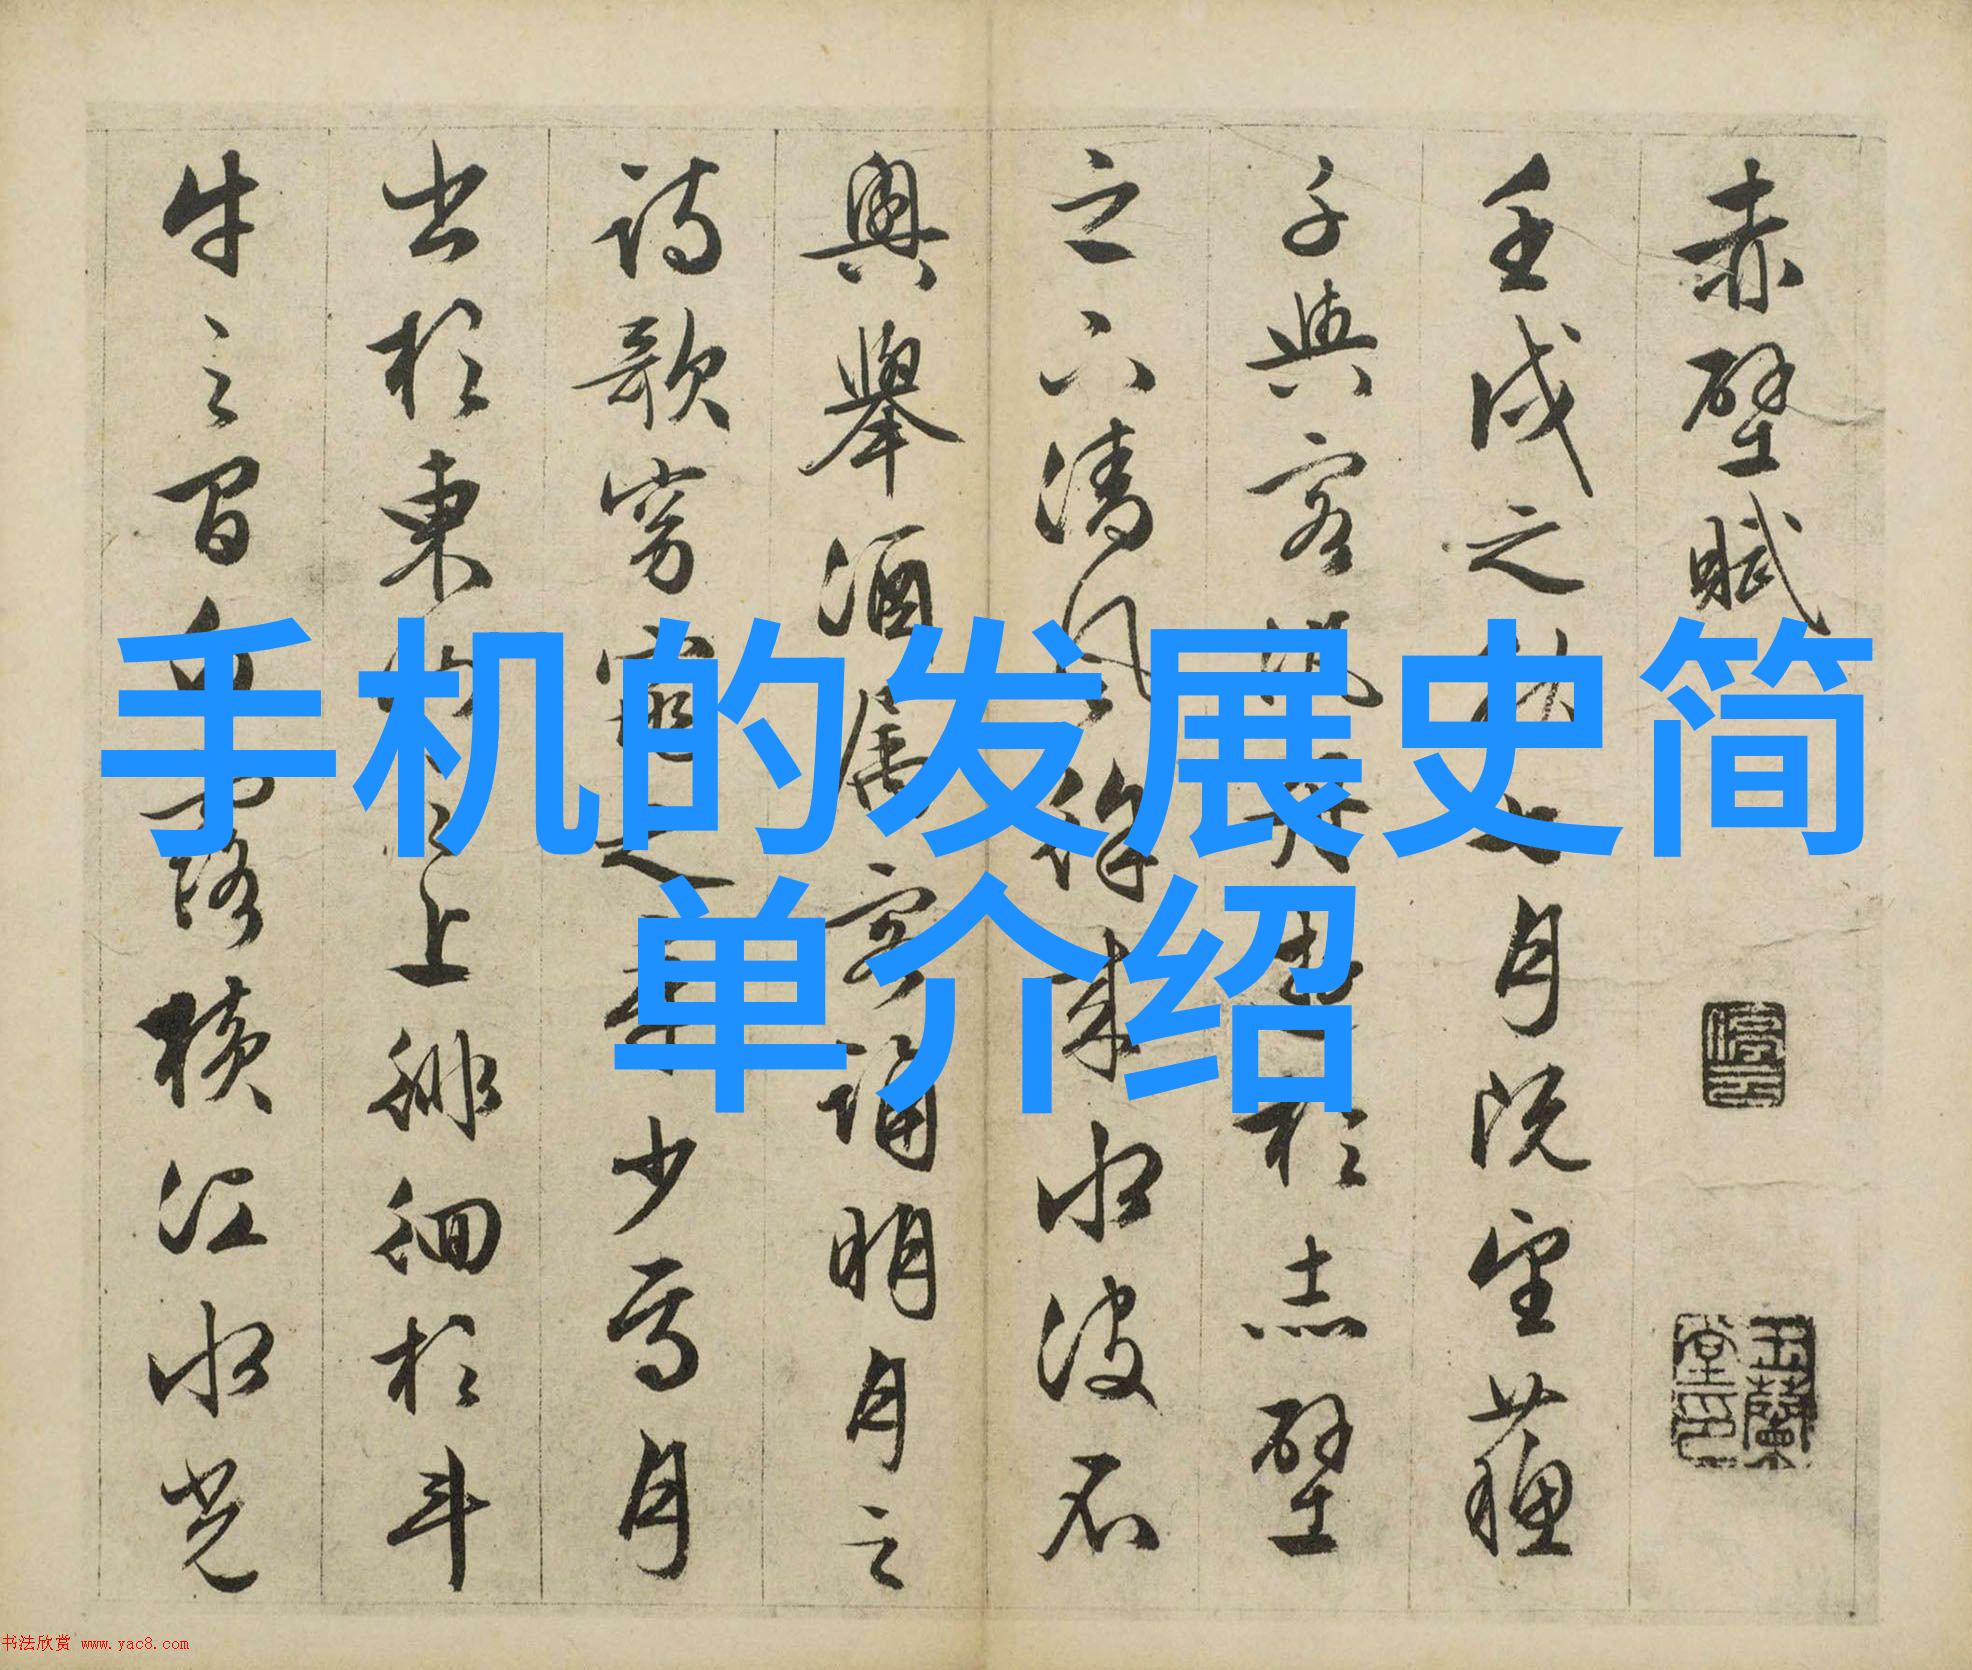 手机的发展史简
单介绍
赤壁賦
壬戌之秋七月既望蘇
子與客泛舟遊於赤壁
之下清風徐来水波不
興舉酒属客誦明月之
詩歌窈窕之章少焉月
出於東山之上徘徊於斗
牛之間白露横江水光
玉蘭堂印
书法欣赏 www.yac8.com